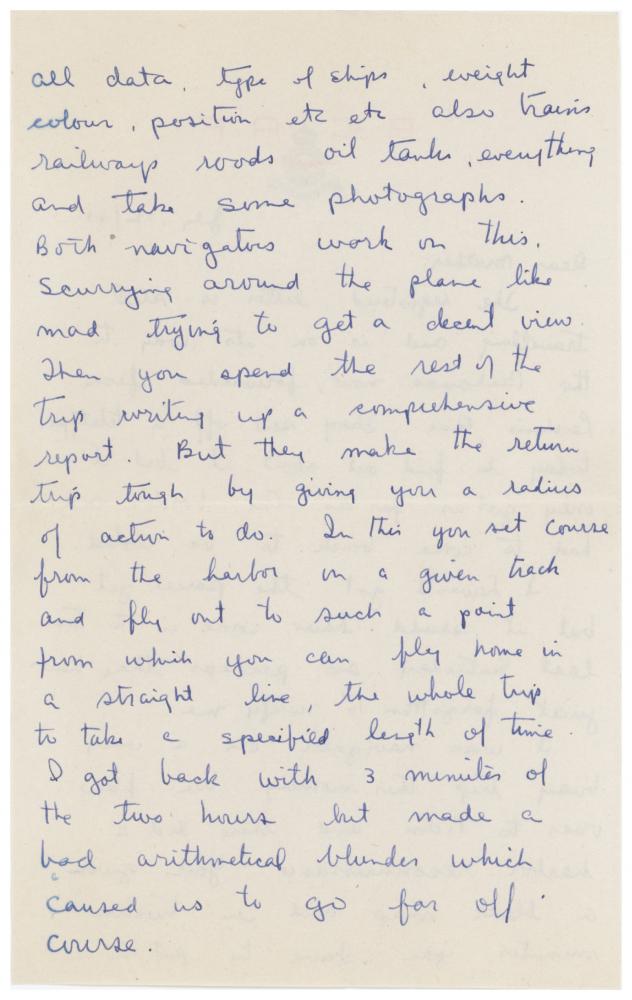 all data, type of ships, weight
colour, position etc etc also trains
railways roads oil tanks, everything
and take some photographs.
Both navigators work on this.
scurrying around the plane like
mad trying to get a decent view.
Then you spend the rest of the
trip writing up a comprehensive
report. But they make the return
trip tough by giving you a radius
of action to do. In this you set course
from the harbor on a given track
and fly out to such a point
from which you can fly home in
a straight line, the whole trip
to take a specified length of time.
I got back with 3 minutes of
the two hours but made a
bad arithmetical blunder which
caused us to go far off
course.